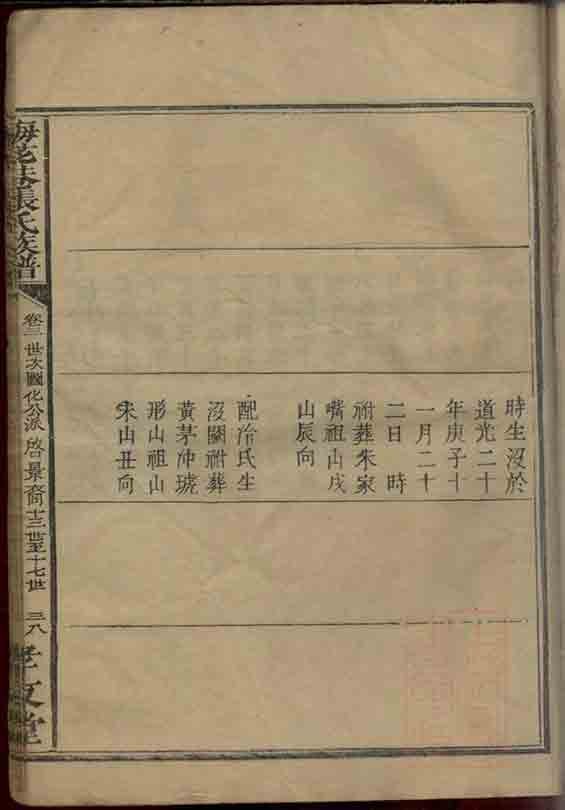 時生沒於
道光二十
年庚子十
一月二十
二日 時
祔葬朱家
嘴祖山戌
山辰向
配冷氏生
沒闕祔葬
黃茅冲琥
形山祖山
未山丑向
梅花巷張氏族譜
卷三 世次圖化公派 啓景裔十三世至十七世 三八
孝友堂